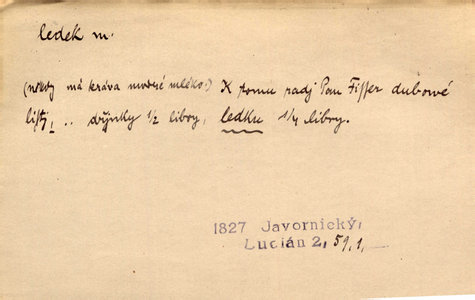 ledek m.
(někdy má kráva modré mléko:) K tomu radj Pan Fisser dubowé
listj, .. dýnky ½ libry, ledku ¼ libry.
1827 Javornický,
Lucián 2, 59,1,